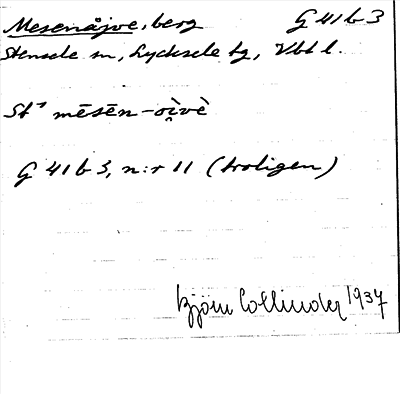 Mesenåjve, berg G 41 b 3
Stensele sn, Lycksele tg, Vbt l.
St˃ mēsēn-oi̯vè
G 41 b 3, n:r 11 (troligen)
Björn Collinder 1937